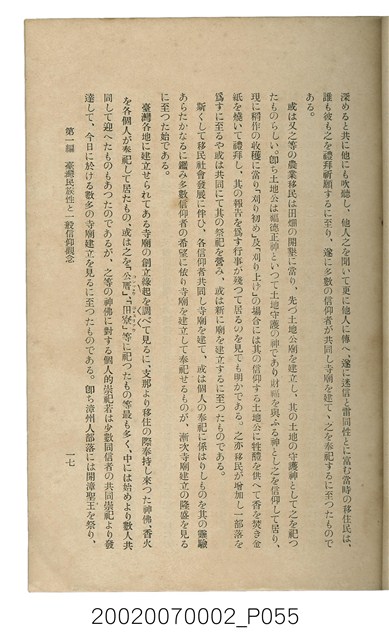 深めると共に他にも吹聽し、他人之を聞いて更に他人に傳へ、遂に迷信と雷同性とに富む當時の移住民は、
誰も彼も之を禮拜祈願するに至り、遂に多數の信仰者が共同し寺廟を建て、之を奉祀するに至つたもので
ある。
或は又之等の農業移民は田畑の開墾に當り、先づ土地公廟を建立し、其の土地の守護神として之を祀つ
たものらしい。卽ち土地公は福德正神といつて土地守護の神であり財福を與ふる神とし之を信仰して居り、
現に稻作の收穫に當り「刈り初め」及「刈り上げ」の場合には其の信仰する土地公に牲醴を供へて香を焚き金
紙を燒いて禮拜し、其の報告を爲す行事が殘つて居るのを見ても明かである。之亦移民が增加し一部落を
爲すに至るや或は共同にて其の祭祀を營み、或は新に廟を建立するに至つたものである。
斯くして移民社會發展に伴ひ、各信仰者共同し寺廟を建て、或は個人の奉祀に係はりしものを其の靈驗
あらたかなるに鑑み多數信仰者の希望に依り寺廟を建立して奉祀せるものが、漸次寺廟建立の隆盛を見る
に至つた始である。
臺灣各地に建立せられてある寺廟の創立緣起を調べて見るに、支那より移住の際奉持し來つた神佛、香火
を各個人が奉祀して居たもの、或は之を「公厝」、「田寮」等に祀つたもの等最も多く、中には始めより數人共
同して迎へたものもあつたのであるが、之等の神佛に對する個人的崇祀若は少數同信者の共同崇祀より發
達して、今日に於ける數多の寺廟建立を見るに至つたものである。卽ち漳州人部落には開漳聖王を祭り、
第一編 臺灣民族性と一般信仰觀念
一七
20020070002_P055